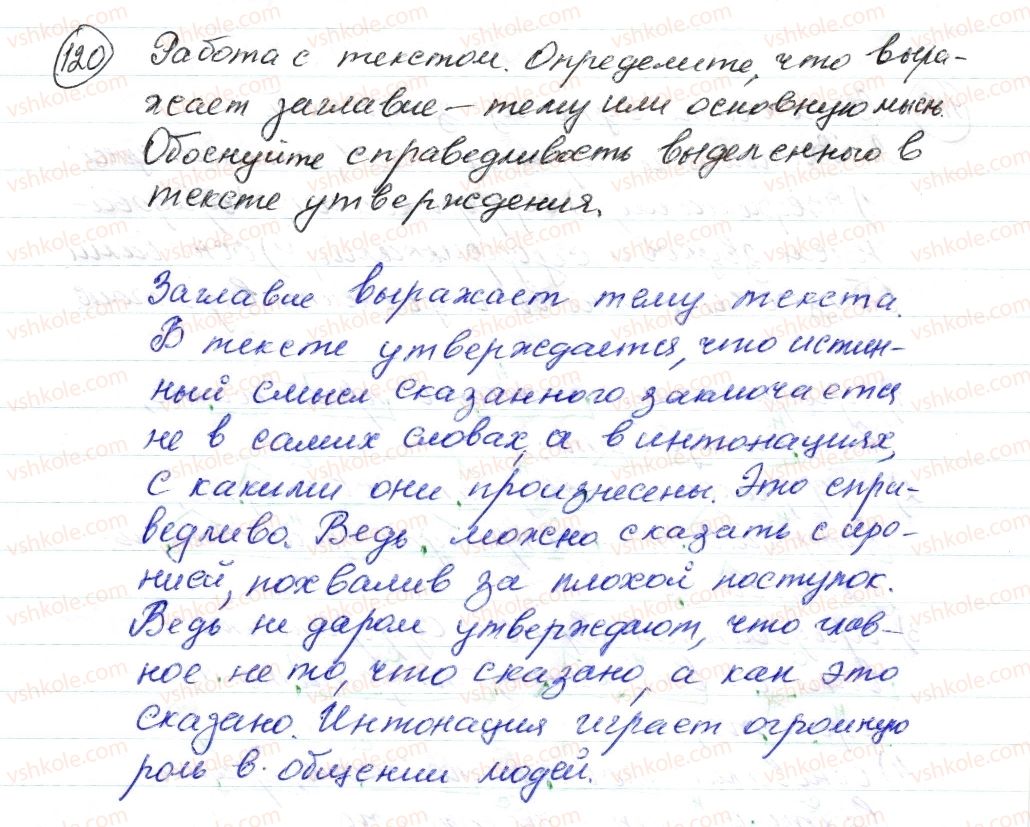 120 Работа с текстом. Определите, что выра-
жает заглавие – тему или основную мысль.
Обоснуйте справедливость выделенного в
тексте утверждения.
Заглавие выражает тему текста.
В тексте утверждается, что истин-
ный смысл сказанного заключается
не в самих словах, а в интонациях,
с какими они произнесены. Это спра-
ведливо. Ведь можно сказать с иро-
нией, похвалив за плохой поступок.
Ведь не даром утверждают, что глав-
ное не то, что сказано, а как это
сказано. Интонация играет огромную
роль в общении людей.